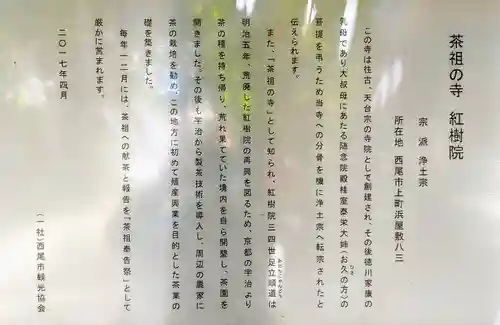 茶祖の寺　紅樹院
宗　派　浄土宗
所在地　西尾市上町浜屋敷八三
この寺は往古、天台宗の寺院として創建され、その後徳川家康の
乳母であり大叔母にあたる随念院殿桂室泰栄大姉(お久の方)の
菩提を弔うため当寺への分骨を機に浄土宗へ転宗されたと
伝えられます。
また、「茶祖の寺」として知られ、紅樹院三四世足立順道は
明治五年、荒廃した紅樹院の再興を図るため、京都の宇治より
茶の種を持ち帰り、荒れ果てていた境内を自ら開墾し、茶園を
開きました。その後も宇治から製茶技術を導入し、周辺の農家に
茶の栽培を勧め、この地方に初めて殖産興業を目的とした茶業の
礎を築きました。
毎年一二月には、茶祖への献茶と報告を「茶祖奉告祭」として
厳かに営まれます。
二〇一七年四月
(一社)西尾市観光協会